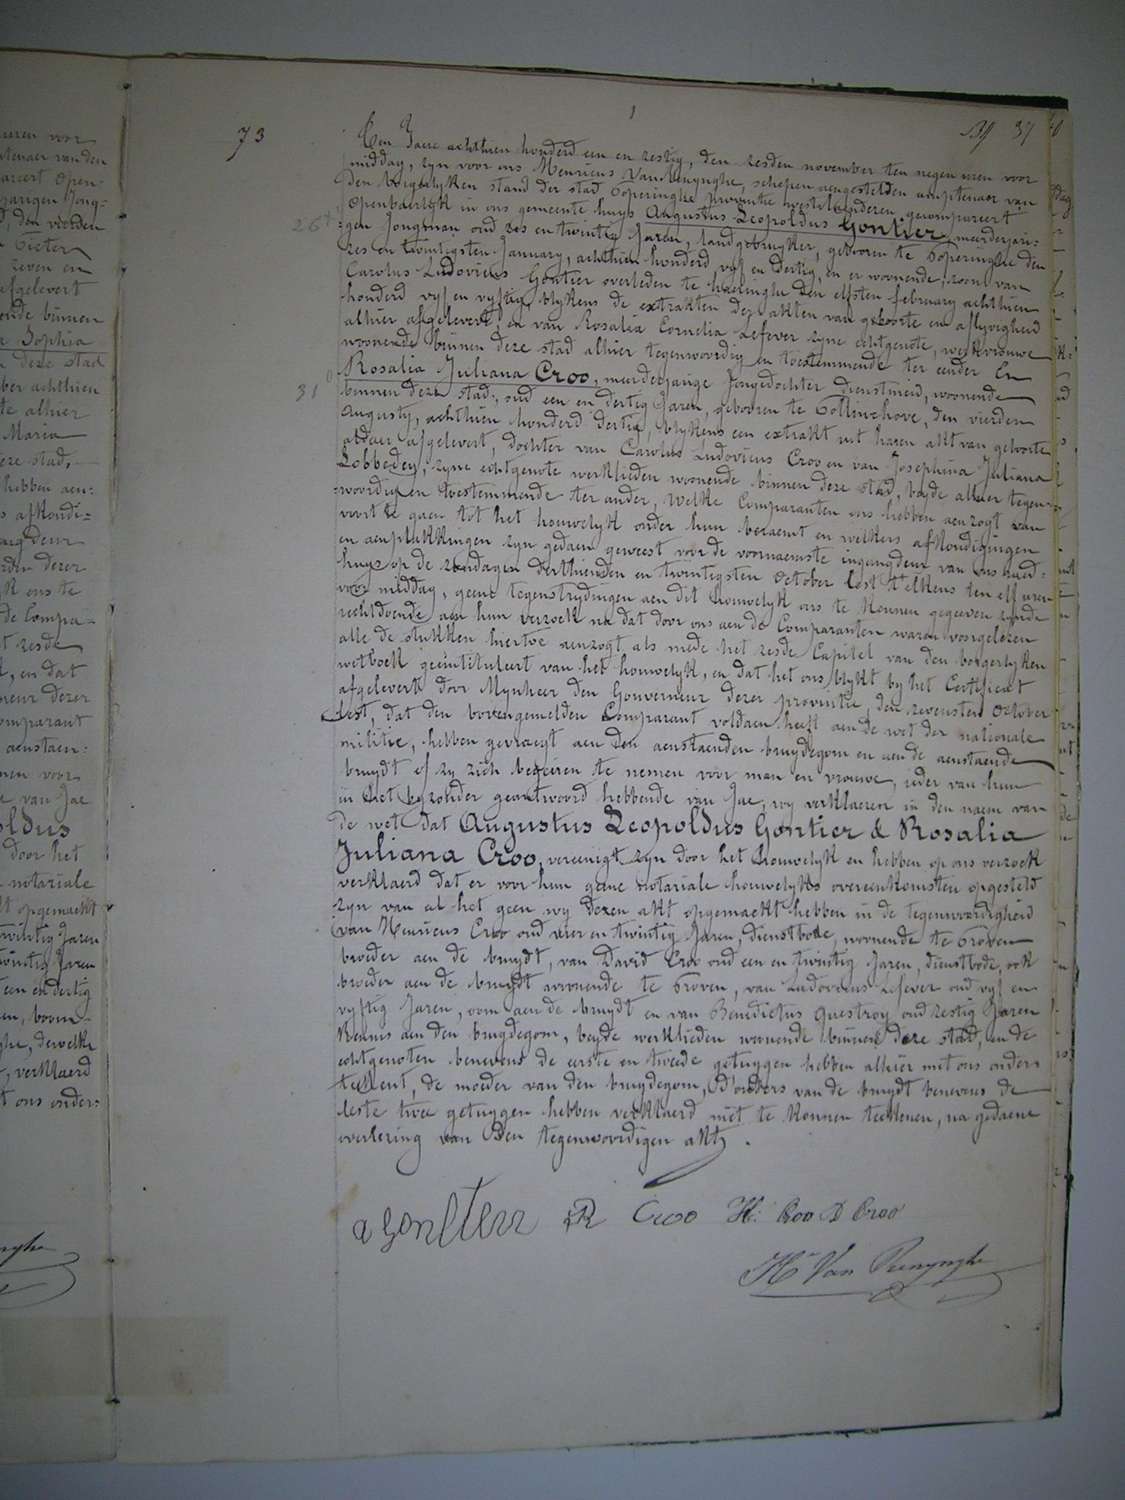 73
1
37
Ten Jaere achthien honderd een en zestig, den zesden november ten negen uren voor
middag, zyn voor ons Henricus Van Renynghe, schepen aengestelden amptenaer van
den borgerlyken stand der stad Poperinghe provintie westvlaenderen gecompareert
Openbaerlyk in ons gemeente huys Augustus Leopoldus Gontier, meerderjari=
26
gen Jongman oud zes en twintig Jaren, landgebruyker, gebooren te Poperinghe den
zes en twintigsten January, achthien honderd vyf en dertig, en er woonende, zoon van
Carolus Ludovicus Gontier overleden te den elfsten february achthien
honderd vyf en vyftig, blykens de extrakten der akten van geboorte en aflyvigheid
alhier afgelevert, en van Rosalia Cornelia Lefever zyne echtgenote, werkvrouwe
woonende binnen deze stad alhier tegenwoordig en toestemmende ter eender En
Rosalia Juliana Croo, meerderjarige Jongedochter dienstmeid, woonende
31
binnen deze stad, oud een en dertig Jaren, gebooren te Pollinchove, den vierden
augusty, achthien honderd dertig, blykens een extrakt uit haren akt van geboorte
aldaer afgelevert, dochter van Carolus Ludovicus Croo en van Josephina Juliana
Lobbedey, zyne echtgenote werklieden woonende binnen deze stad, beyde alhier tegen=
woordig en toestemmende ter ander, Welke Comparanten ons hebben aenzogt van
voort te gaen tot het houwelyk onder hun beraemt en welkers afkondigingen
en aenplakkingen zyn gedaen geweest voor de voornaemste ingangdeur van ons raed=
huys op de zondagen derthienden en twintigsten October lest t'elkens ten elf uren
voor middag, geene tegenstrydingen aen dit houwelyk ons te kennen gegeeven zynde
rechtdoende aen hun verzoek na dat door ons aen de Comparanten waren voorgelezen
alle de stukken hiertoe aenzogt als mede het zesde Capitel van den borgerlyken
wetboek geïntituleert van het houwelyk, en dat het ons blykt by het Certificaet
afgelevert door Mynheer den Gouverneur dezer provintie, den zevensten October
lest, dat den bovengemelden Comparant voldaen heeft aen de wet der nationale
militie, hebben gevraegt aen den aenstaenden bruydegom en aen de aenstaende
bruydt of zy zich begeeren te nemen voor man en vrouwe, ieder van hun
in het byzonder geantwoord hebbende van Jae, wy verklaeren in den naem van
de wet dat Augustus Leopoldus Gontier & Rosalia
Juliana Croo, vereenigt zyn door het houwelyk en hebben op ons verzoek
verklaerd dat er voor hun geene notariale houwelyks overeenkomsten opgesteld
zyn van al het geen wy dezen akt opgemackt hebben in de tegenwoordigheid
van Henricus Croo oud vier en twintig Jaren, dienstbode, woonende te Proven
broeder aen de bruydt, van David Croo oud een en twintig Jaren, dienstbode, ook
broeder aen de bruydt woonende te Proven, van Ludovicus Lefever oud vyf en
vyftig Jaren, oom aen de bruydt en van Benedictus Questroy oud zestig Jaren
kennis aen den bruydegom, beyde werklieden woonende binnen deze stad, en de
echtgenoten benevens de eerste en tweede getuygen hebben alhier met ons onder=
teekent, de moeder van den bruydegom, d'ouders van de bruydt benevens de
leste twee getuygen hebben verklaerd niet te konnen teekenen, na gedaene
overlezing van den tegenwoordigen akt.
a gontier R Croo H: Croo D Croo
Hri Van Renynghe